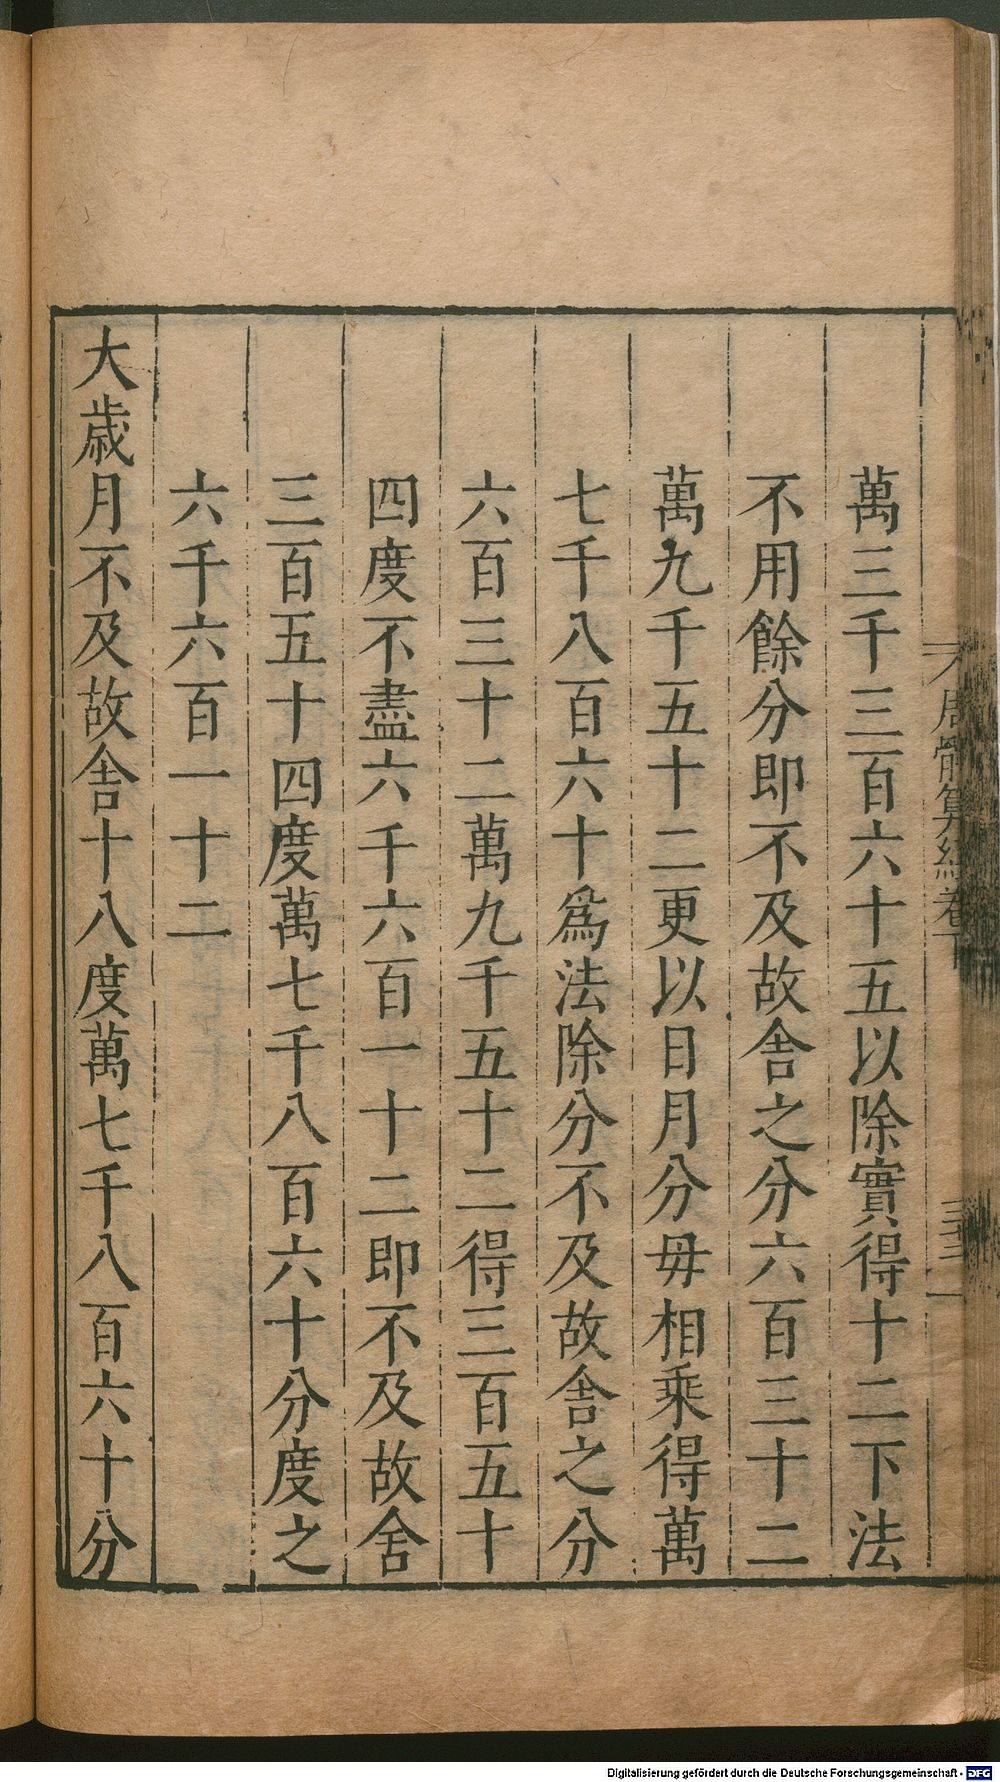 周髀算經卷下
三十三
萬三千三百六十五以除實得十二下法
不用餘分即不及故舍之分六百三十二
萬九千五十二更以日月分母相乘得萬
七千八百六十爲法除分不及故舍之分
六百三十二萬九千五十二得三百五十
四度不盡六千六百一十二即不及故舍
三百五十四度萬七千八百六十分度之
六千六百一十二
大歲月不及故舍十八度萬七千八百六十分
Digitalisierung gefördert durch die Deutsche Forschungsgemeinschaft - DFG